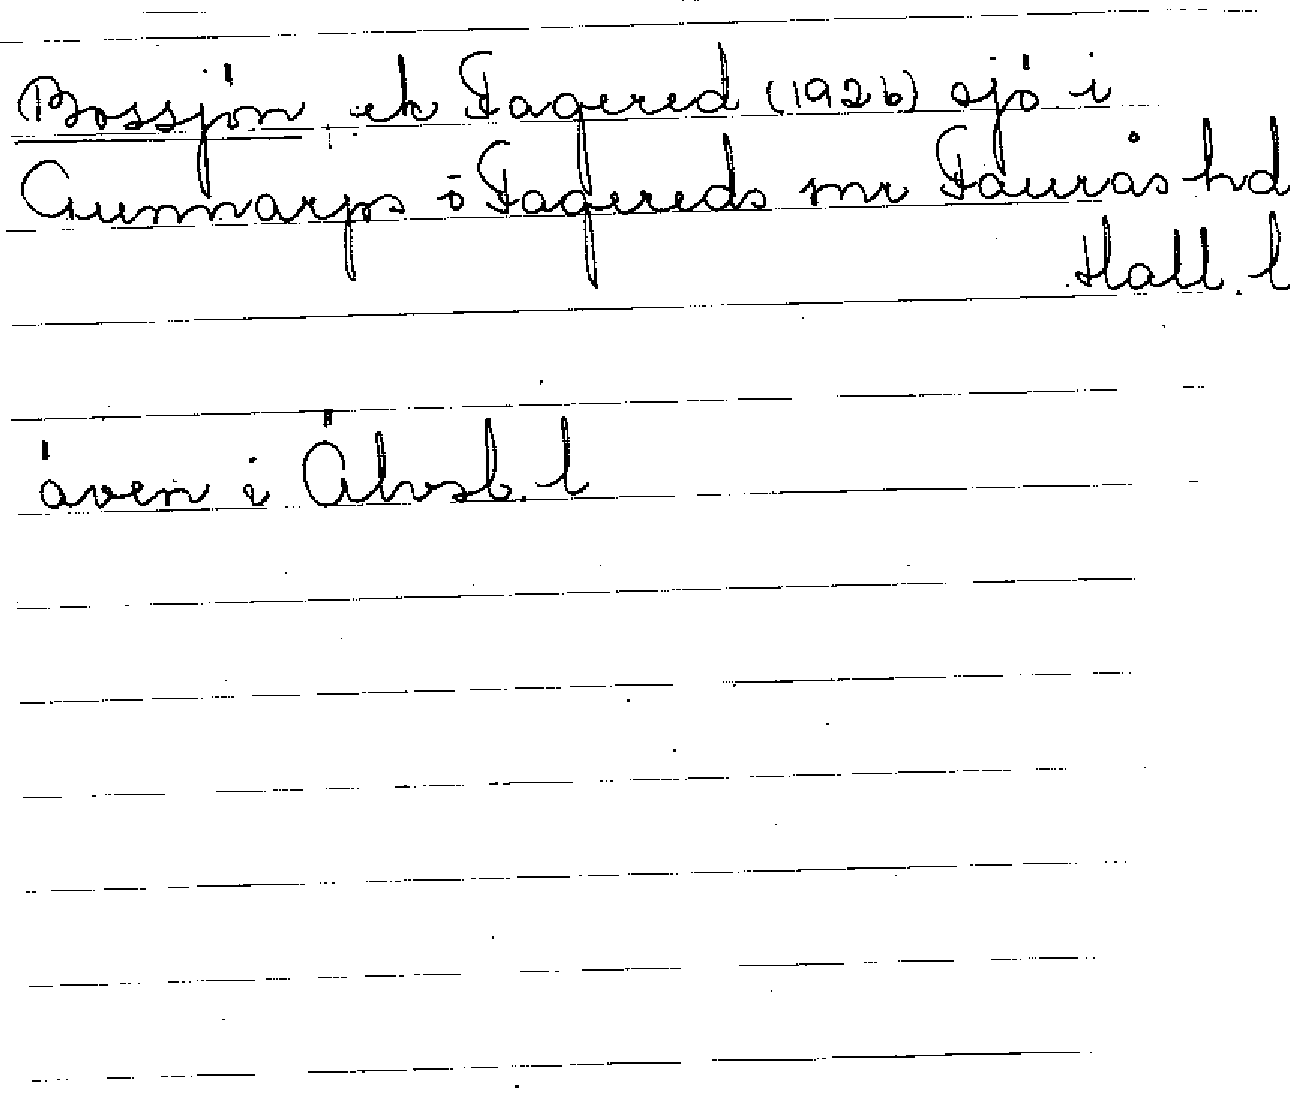 Bossjön, ek Fagered (1926) sjö i
Gunnarps o Fagereds snr Faurås hd
Hall. l
även i Älvsb. l